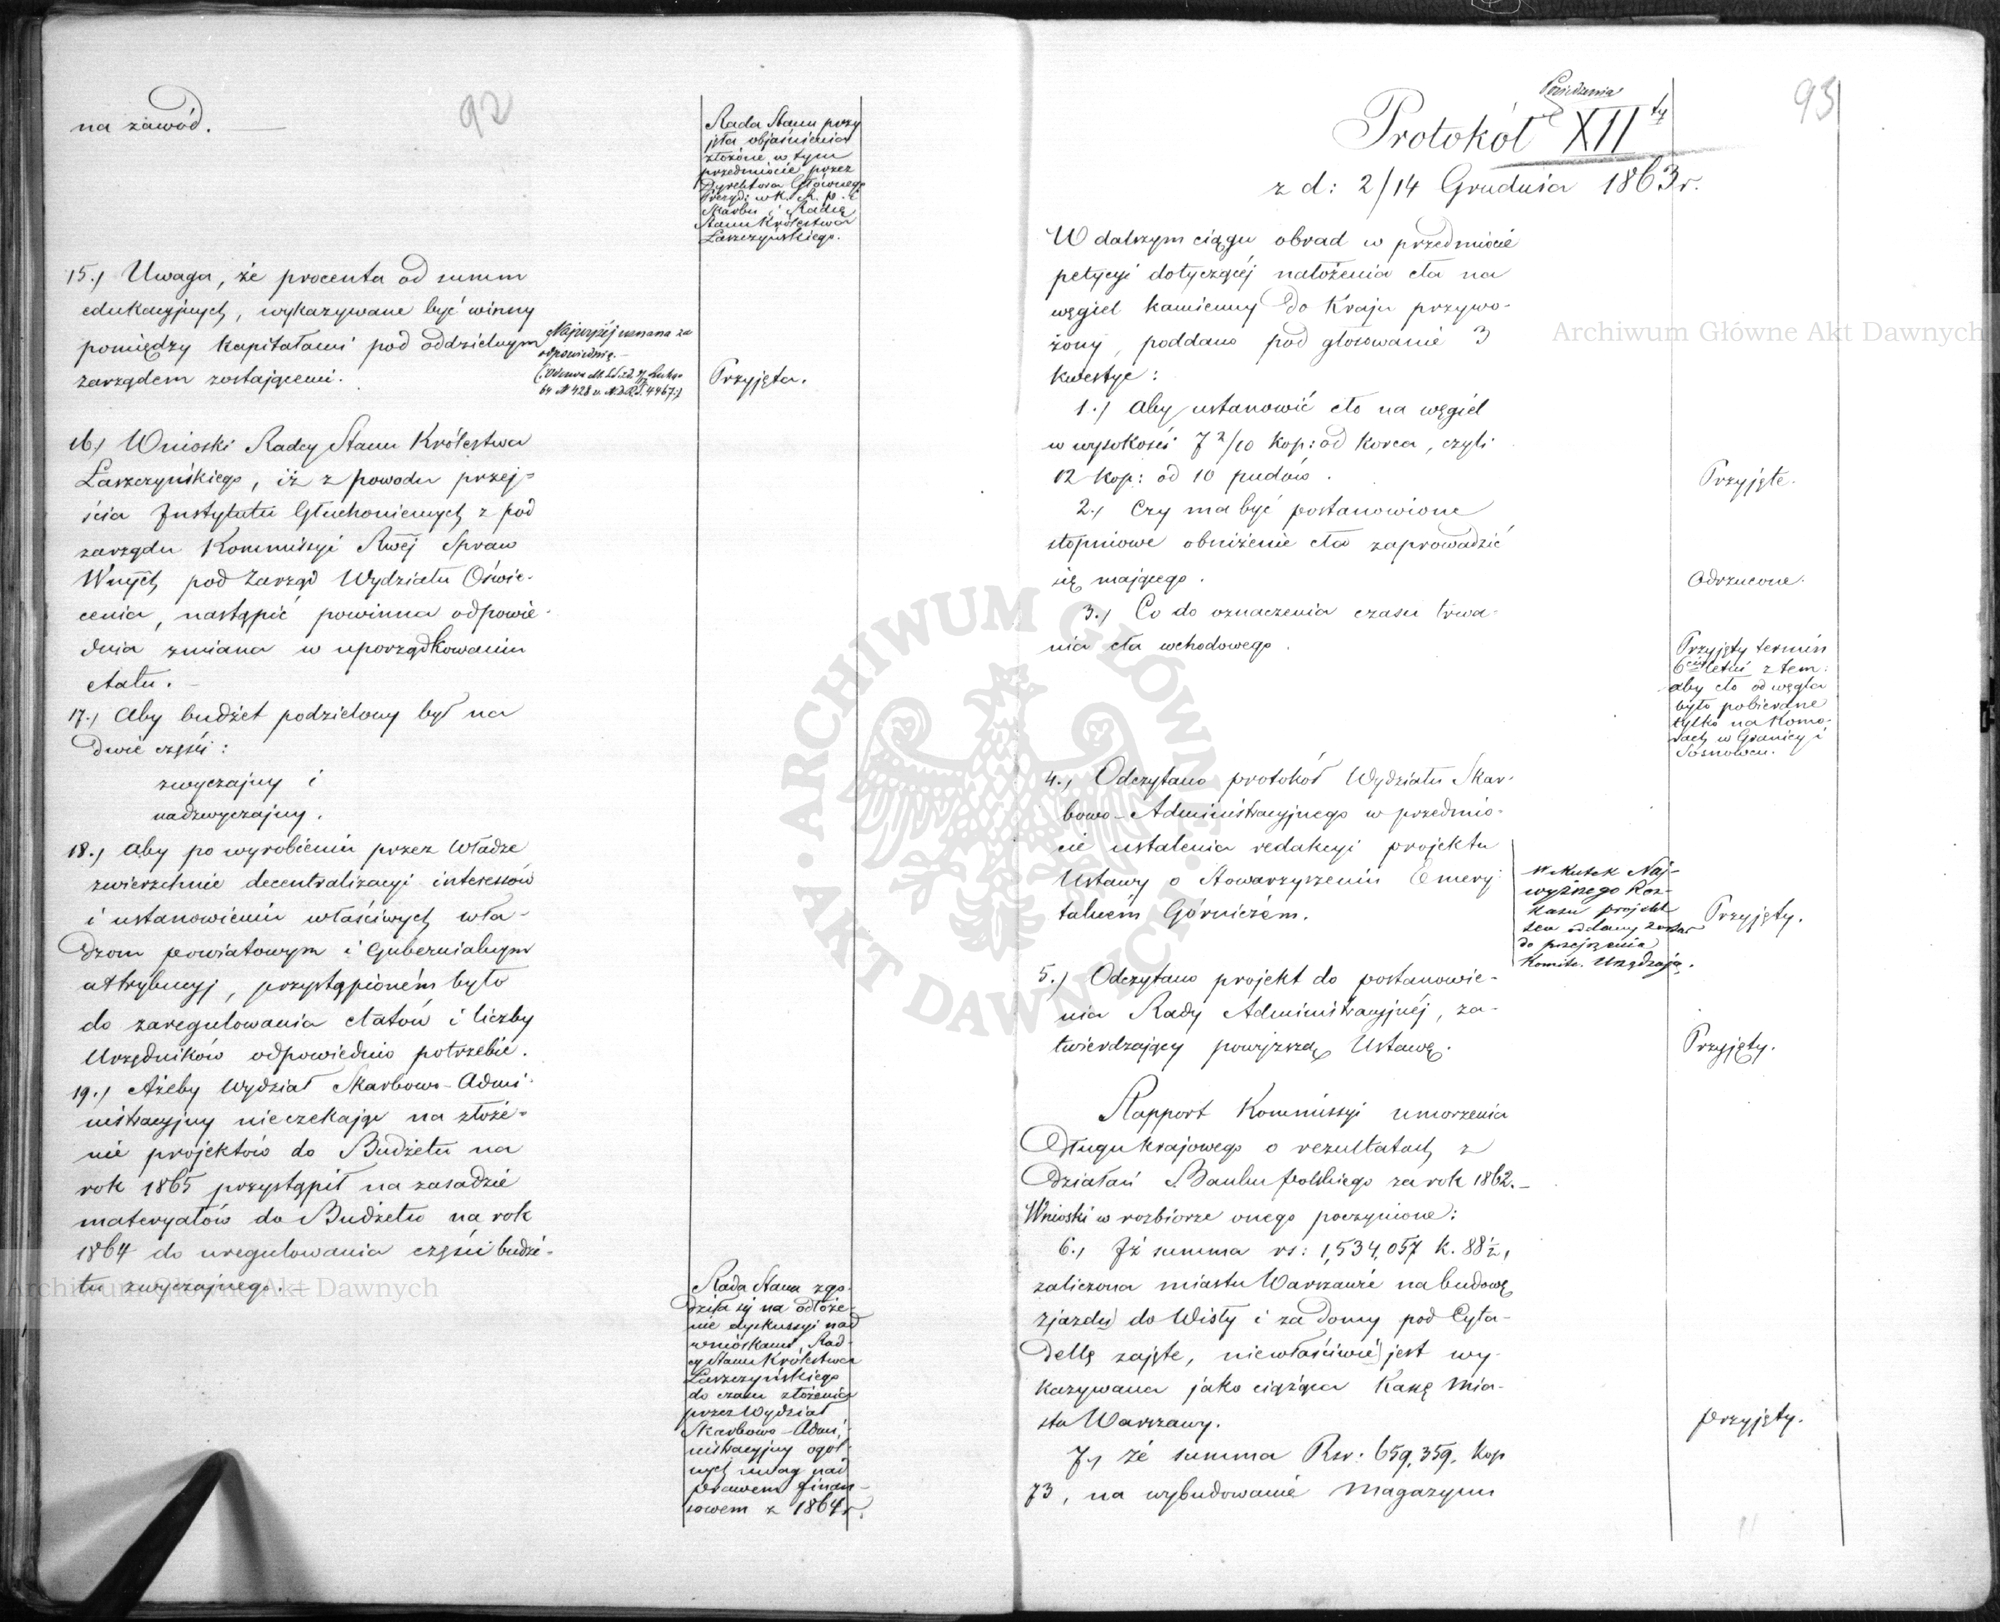 92
na zawód. —
Rada Stanu przy
jęła objaśnienia
złożone w tym
przedmiocie przez
Dyrektora Głównego
Prezyd: w K. R. P. i
Skarbu i Radcę
Stanu Królestwa
Łaszczyńskiego.
15.) Uwaga, że procenta od summ
edukacyjnych, wykazywane być winny
pomiędzy kapitałami pod oddzielnym
zarządem zostającemi.
Najwyżej uznana za
odpowiednią. —
64 N 428 v. N.D.R.S. 4467.)
Przyjęta.
16.) Wnioski Radcy Stanu Królestwa
Łaszczyńskiego, iż z powodu przej-
ścia Instytutu Głuchoniemych z pod
zarządu Kommissyi Rwéj Spraw
Wnych pod Zarząd Wydziału Oświe-
cenia, nastąpić powinna odpowie-
dnia zmiana w uporządkowaniu
etatu. —
17.) Aby budżet podzielony był na
dwie części:
zwyczajny i
nadzwyczajny.
18.) Aby po wyrobieniu przez Władze
zwierzchnie decentralizacyi interessów
i ustanowieniu właściwych wła-
dzom powiatowym i Gubernialnym
attrybucyj, przystąpioném było
do zaregulowania etatów i liczby
Urzędników odpowiednio potrzebie.
19.) Ażeby Wydział Skarbowo-Admi-
nistracyjny nieczekając na złoże-
nie projektów do Budżetu na
rok 1865 przystąpił na zasadzie
materyałów do Budżetu na rok
1864 do uregulowania części budże-
tu zwyczajnego. —
Rada Stanu zgo-
dziła się na odłoże-
nie dyskussyi nad
wnioskami Rad-
cy Stanu Królestwa
Łaszczyńskiego
do czasu złożenia
przez Wydział
Skarbowo-Admi-
nistracyjny ogól-
nych uwag nad
prawem finan-
sowem z 1864 r.
93
Posiedzenia
Protokół XII ty
z d: 2/14 Grudnia 1863 r.
W dalszym ciągu obrad w przedmiocie
petycyi dotyczącéj nałożenia cła na
węgiel kamienny do Kraju przywo-
żony, poddano pod głosowanie 3
kwestye:
1.) Aby ustanowić cło na węgiel
w wysokości 7 2/10 kop: od korca, czyli
12 kop: od 10 pudów.
Przyjęte.
2.) Czy ma być postanowione
stopniowe obniżenie cła zaprowadzić
się mającego.
Odrzucone.
3.) Co do oznaczenia czasu trwa-
nia cła wchodowego.
Przyjęty termin
6cio letni z tem:
aby cło od węgla
było pobierane
tylko na Komo-
rach w Granicy i
Sosnowcu.
4.) Odczytano protokół Wydziału Skar-
bowo-Administracyjnego w przedmio-
cie ustalenia redakcyi projektu
Ustawy o Stowarzyszeniu Emery-
talném Górniczém.
W skutek Naj-
wyższego Roz-
kazu projekt
ten oddany został
do przejrzenia
Komite. Urządzają.
Przyjęty.
5.) Odczytano projekt do postanowie-
nia Rady Administracyjnéj, za-
twierdzający powyższą Ustawę.
Przyjęty.
Rapport Kommissyi umorzenia
Długu krajowego o rezultatach z
działań Banku Polskiego za rok 1862. —
Wnioski w rozbiorze onego poczynione:
6.) Iż summa rs: 1,534,057 k. 88½,
zaliczona miastu Warszawie na budowę
zjazdu do Wisły i za domy pod Cyta-
dellę zajęte, niewłaściwie jest wy-
kazywana jako ciążąca Kassę Mia-
sta Warszawy.
Przyjęty.
7.) Że summa Rsr: 659,359, kop
73, na wybudowanie Magazynu
Archiwum Główne Akt Dawnych
Archiwum Główne Akt Dawnych
ARCHIWUM GŁÓWNE AKT DAWNYCH